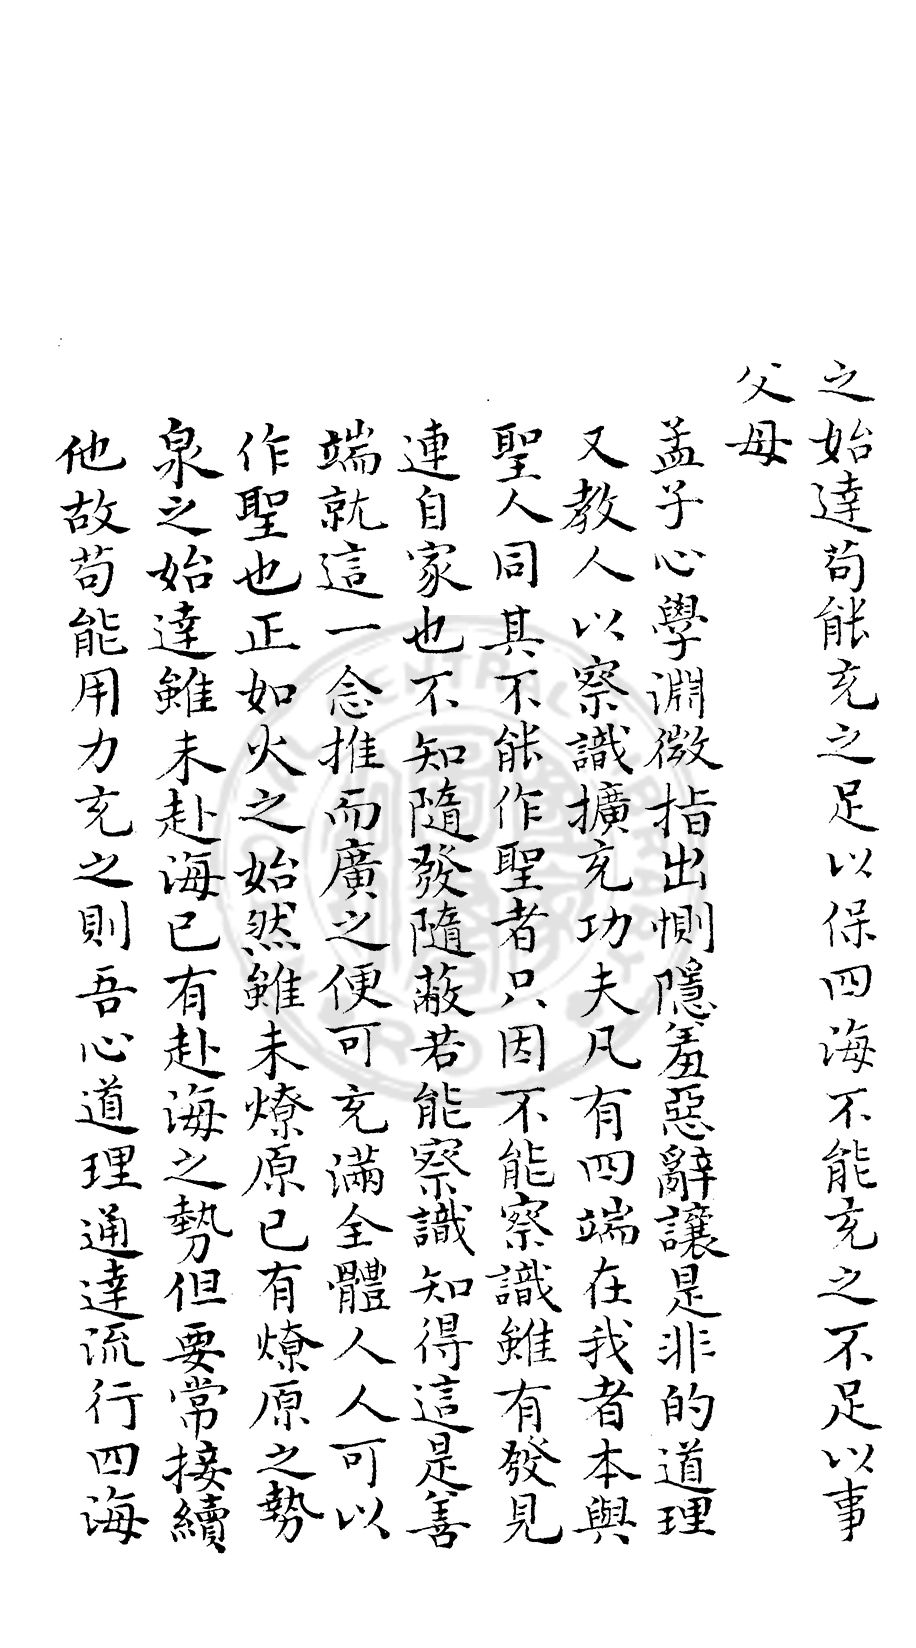 之始達苟能充之足以保四海不能充之不足以事
父母
孟子心學淵微指出惻隱羞惡辭讓是非的道理
又教人以察識擴充功夫凡有四端在我者本與
聖人同其不能作聖者只因不能察識雖有發見
連自家也不知隨發隨蔽若能察識知得這是善
端就這一念推而廣之便可充滿全體人人可以
作聖也正如火之始然雖未燎原已有燎原之勢
泉之始達雖未赴海已有赴海之勢但要常接續
他故苟能用力充之則吾心道理通達流行四海